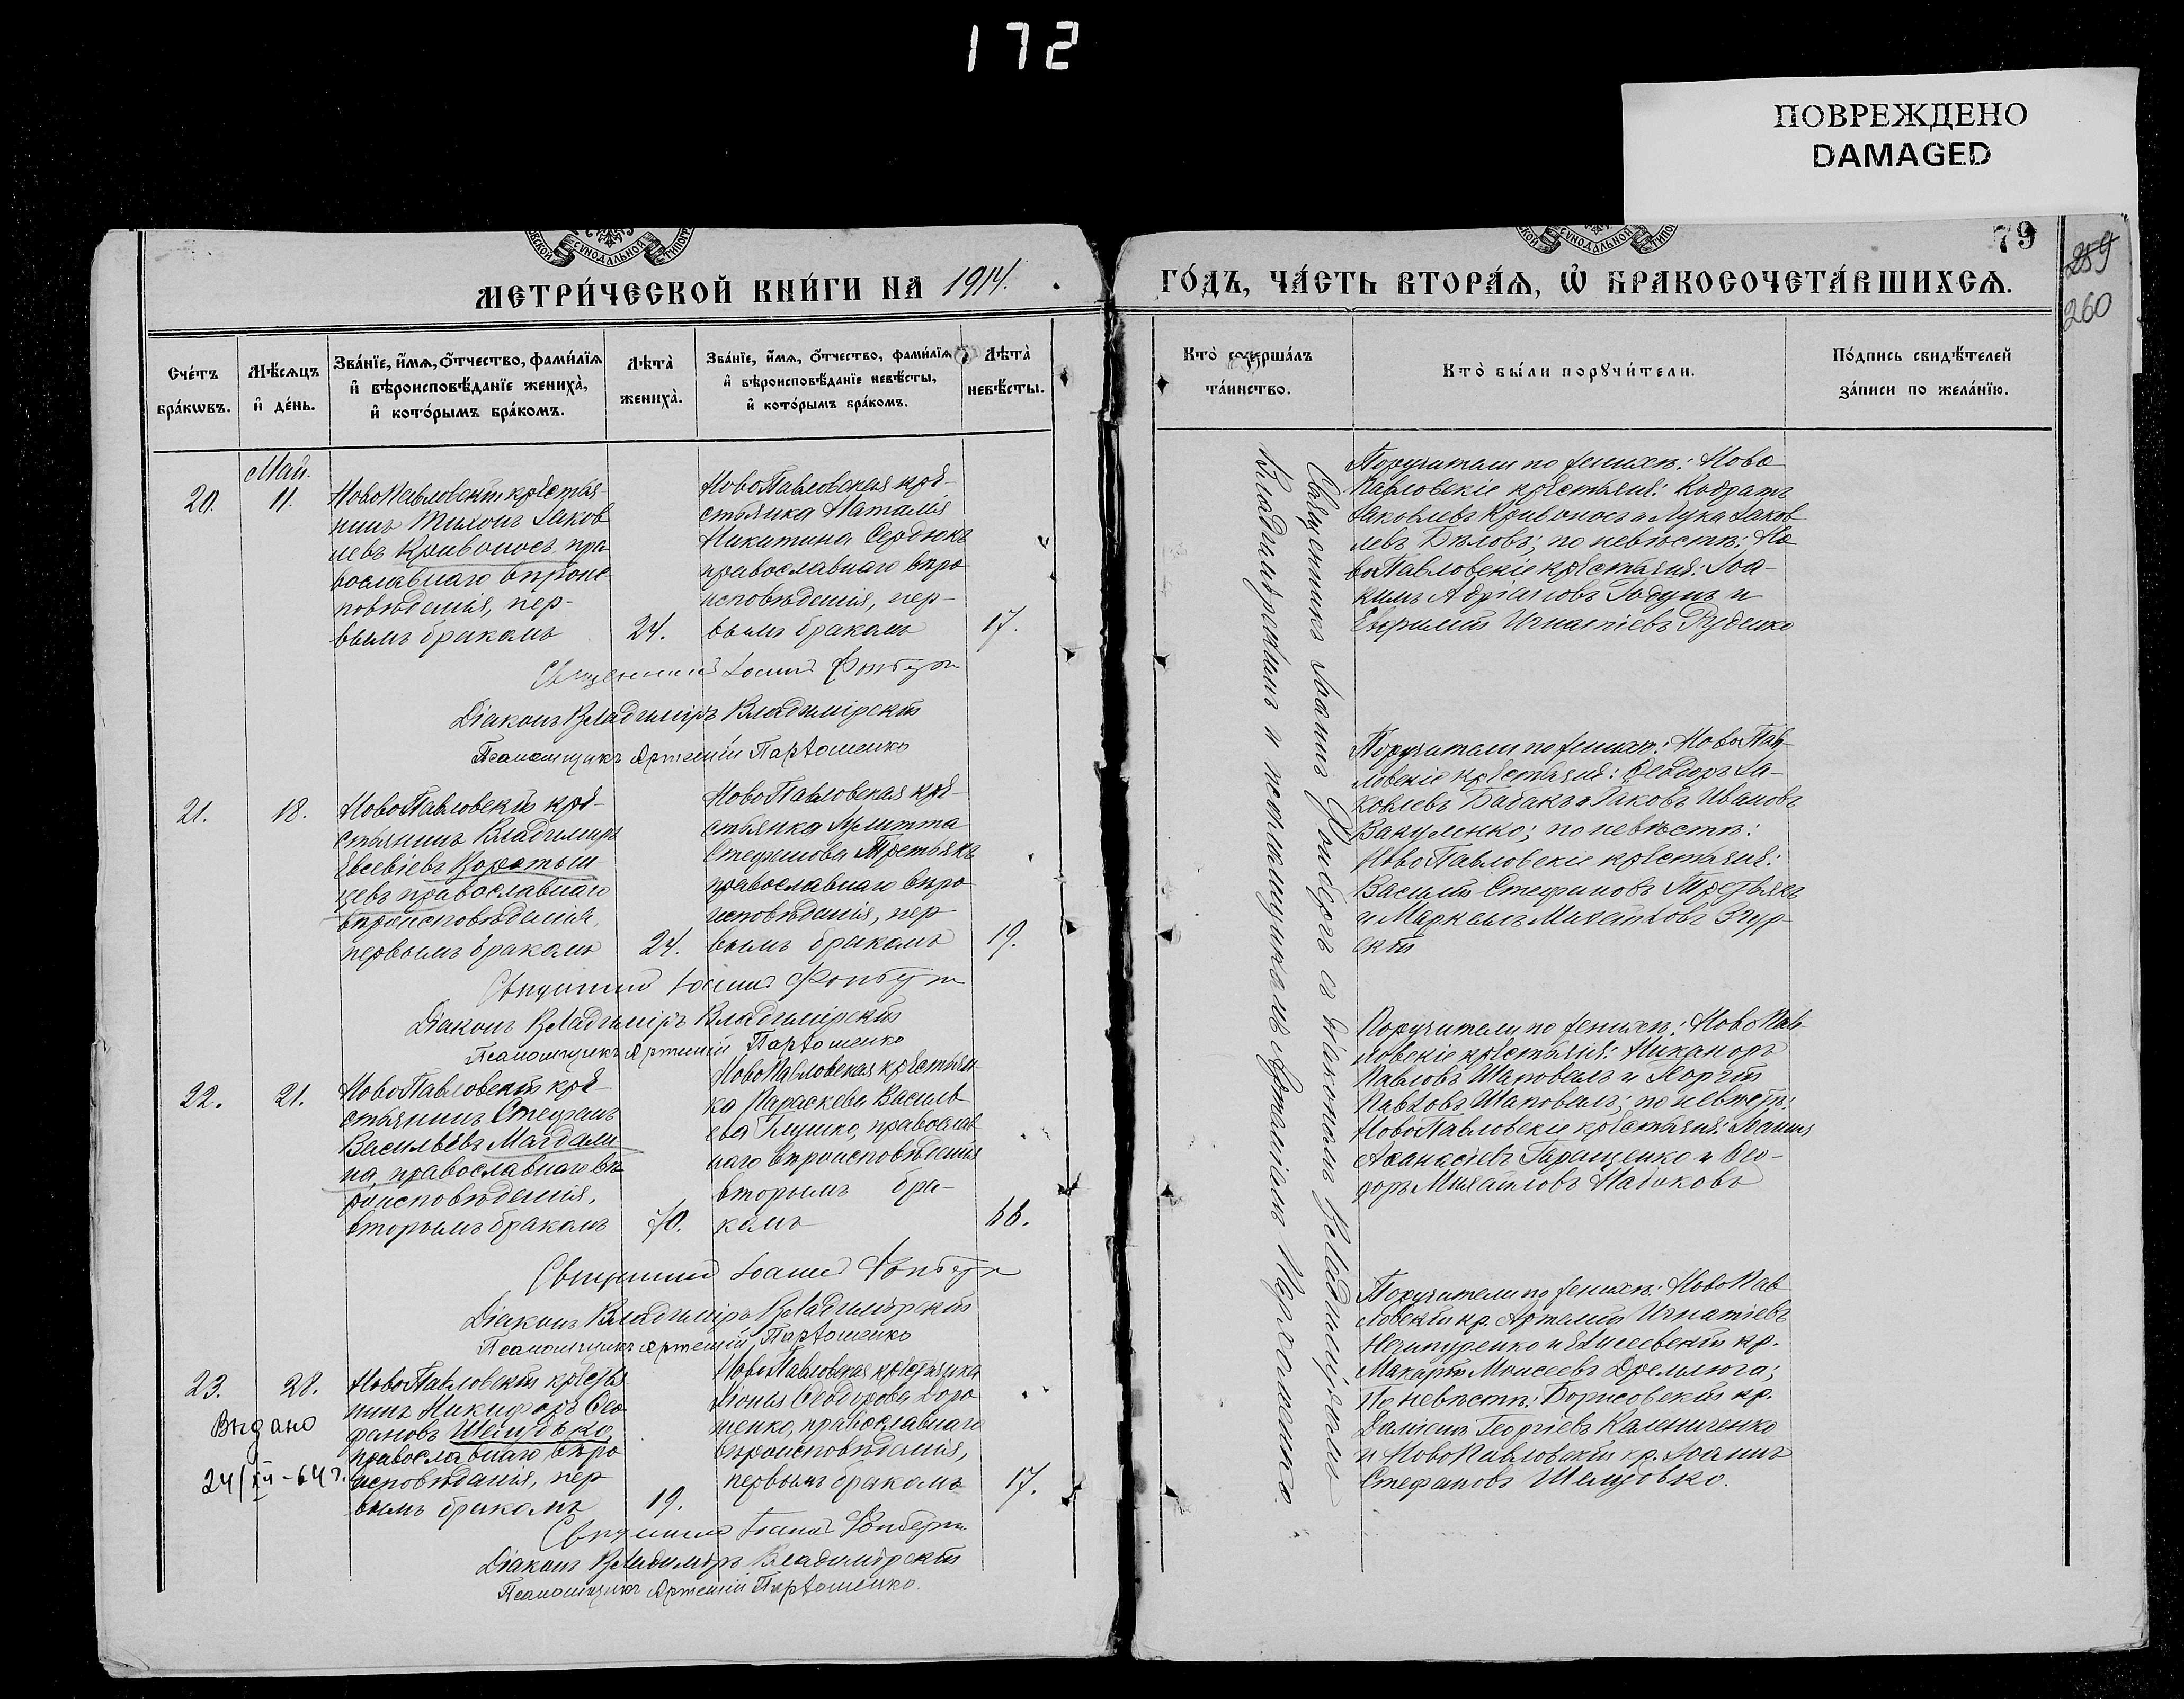 172
ПОВРЕЖДЕНО
DAMAGED
79
259
260
МЕТРИ́ЧЕСКОЙ КНИ́ГИ НА 1914.
ГО́ДЪ, ЧА́СТЬ ВТОРА́Ѧ, Ѽ БРАКОСОЧЕТА́ВШИХСѦ.
Сче́тъ бра́кѡвъ.
Мѣ́сѧцъ и҆ де́нь.
Зва́нїе, и҆́мѧ, ѻ҆́тчество, фами́лїѧ и҆ вѣроисповѣ́данїе жениха̀, и҆ кото́рымъ бра́комъ.
Лѣ́та жениха̀.
Зва́нїе, и҆́мѧ, ѻ҆́тчество, фами́лїѧ и҆ вѣроисповѣ́данїе невѣ́сты, и҆ кото́рымъ бра́комъ.
Лѣ́та невѣ́сты.
Кто̀ соверша́лъ та́инство.
Кто̀ бы́ли порꙋчи́тели.
По́дпись свидѣ́телей за́писи по жела́нїю.
Май.
20.
11.
НовоПавловскій крестья
нинъ Тихонъ Іаков
левъ Кривоносъ, пра
вославнаго вѣроис
повѣданія, пер-
вымъ бракомъ
24.
НовоПавловская кре-
стьянка Наталія
Никитина Сердюкъ
православнаго вѣро
исповѣданія, пер-
вымъ бракомъ
17.
Поручители по женихѣ: Ново
Павловскіе крестьяне: Кодратъ
Іаковлевъ Кривоносъ и Лука Іаков
левъ Бѣловъ; по невѣстѣ: Но
воПавловскіе крестьяне: Іоа-
кимъ Адріановъ Годунъ и
Евфимій Игнатіевъ Руденко
Священникъ Іоаннъ
Діаконъ Владиміръ Владимірскій
Псаломщикъ Артемій Пархоменко
21.
18.
НовоПавловскій кре-
стьянинъ Владимиръ
Евсевіевъ Коротыш
цевъ православнаго
вѣроисповѣданія,
первымъ бракомъ
24.
НовоПавловская кре-
стьянка
Стефанова Третьякъ
православнаго вѣро
исповѣданія, пер
вымъ бракомъ
19.
Поручители по женихѣ: НовоПав-
ловскіе крестьяне: Ѳеодоръ Іа-
ковлевъ Бабакъ и Іаковъ Ивановъ
Вакуленко; по невѣстѣ:
НовоПавловскіе крестьяне:
Василій Стефановъ Третьякъ
и Маркелъ Михайловъ Згур
скій
Священникъ Іоаннъ
Діаконъ Владиміръ Владимірскій
Псаломщикъ Артемій Пархоменко
22.
21.
НовоПавловскій кре-
стьянинъ Стефанъ
Васильевъ Магдали
на, православнаго вѣ
роисповѣданія,
вторымъ бракомъ
70.
НовоПавловская крестьян-
ка Параскева Василь
ева Глушко, православ
наго вѣроисповѣданія
вторымъ бра-
комъ
66.
Поручители по женихѣ: НовоПав-
ловскіе крестьяне: Никаноръ
Павловъ Шаповалъ и Георгій
Павловъ Шаповалъ; по невѣстѣ:
НовоПавловскіе крестьяне: Іоаннъ
Аѳанасіевъ Геращенко и Ѳео-
доръ Михайловъ Надиковъ
Священникъ Іоаннъ
Діаконъ Владиміръ Владимірскій
Псаломщикъ Артемій Пархоменко
23.
28.
Выдано
24/XII-64 г.
НовоПавловскій крестья
нинъ Никифоръ Сте
фановъ
православнаго вѣро
исповѣданія, пер
вымъ бракомъ
19.
НовоПавловская крестьянка
Ѳеодорова Доро
шенко, православнаго
вѣроисповѣданія,
первымъ бракомъ
17.
Поручители по женихѣ: НовоПав
ловскій кр. Артемій Игнатіевъ
Нечипуренко и Елисевскій кр.
Макарій Моисеевъ Дремлюга;
По невѣстѣ: Борисовскій кр.
Даміанъ Георгіевъ Калениченко
и НовоПавловскій кр. Іоаннъ
Стефановъ
Священникъ Іоаннъ
Діаконъ Владиміръ Владимірскій
Псаломщикъ Артемій Пархоменко.
Священникъ Іоаннъ съ діакономъ Владиміромъ
Владимірскимъ и псаломщикомъ Артеміемъ Пархоменко.